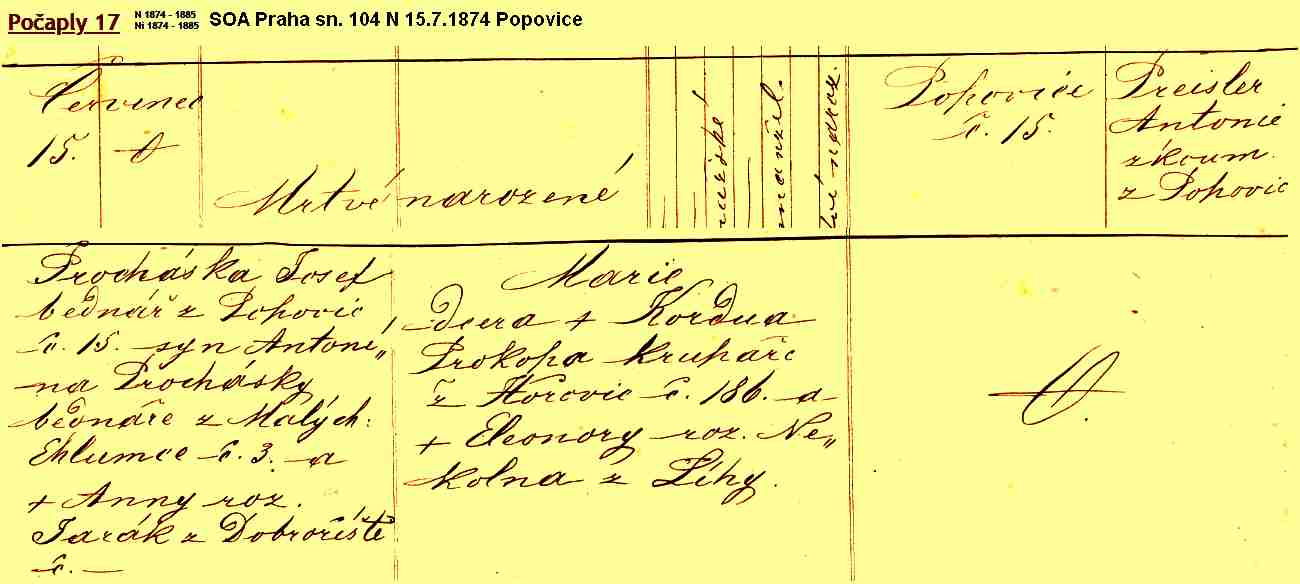 Počaply 17 N 1874 - 1885 SOA Praha sn. 104 N 15.7.1874 Popovice
Ni 1874 - 1885
Červenec
15.
Mrtvé narozené
mužské
manžel.
Popovice
č. 15.
Preisler
Antonie
zkoum.
z Popovic
Procháska Josef
bednář z Popovic
č. 15. syn Antoni„
na Prochásky
bednáře z Malých
Chlumce č. 3. a
+ Anny roz.
z Dobroříště
č. —
Marie
dcera + Kordua
Prokopa kruhaře
z Horovic č. 186. a
+ Eleonory roz. Ne„
kolna z Líhy.